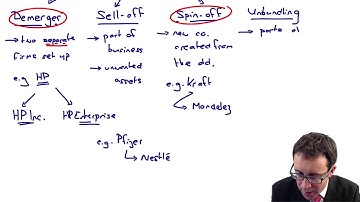 Demerger
→ two separate
firms set up
e.g HP
HP Inc. HP Enterprise
Sell-off
→ part of
business
→ unwanted
assets
e.g. Pfizer
↳ Nestlé
Spin-off
→ new co.
created from
the old.
e.g. Kraft
↳ Mondelez
Unbundling
→ parts of